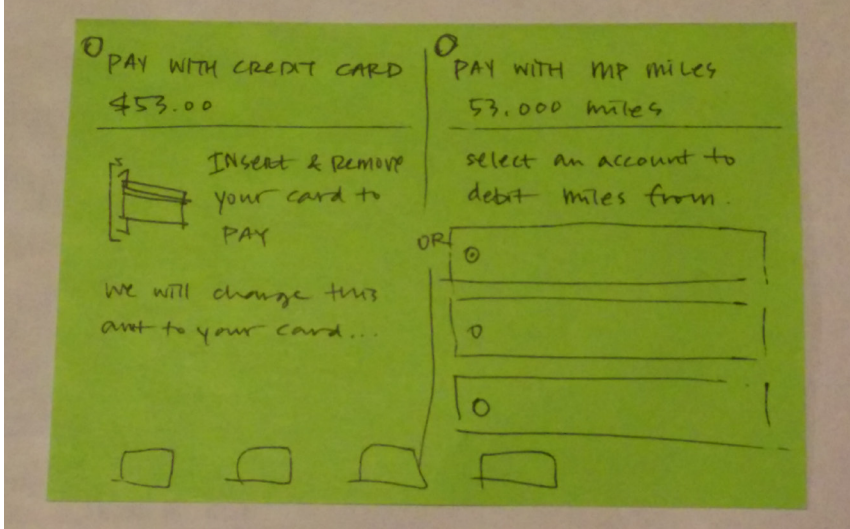 PAY WITH CREDIT CARD
$53.00
INSERT & REMOVE
your card to
PAY
we will change this
amt to your card...
OR
PAY WITH MP miles
53,000 miles
select an account to
debit miles from.